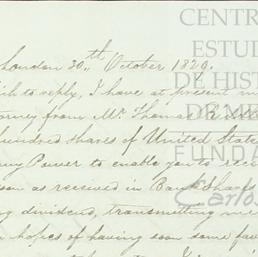 London 30th October 1829.
to reply, I have at present
from Mr. Thomas
hundred shares of United State
Power to enable you
soon as received in Bank Shares
dividend, transmitting me
hopes of having soon some fav
CENTR
ESTUDI
DE HIST
DE ME
FUNDA
Carlos